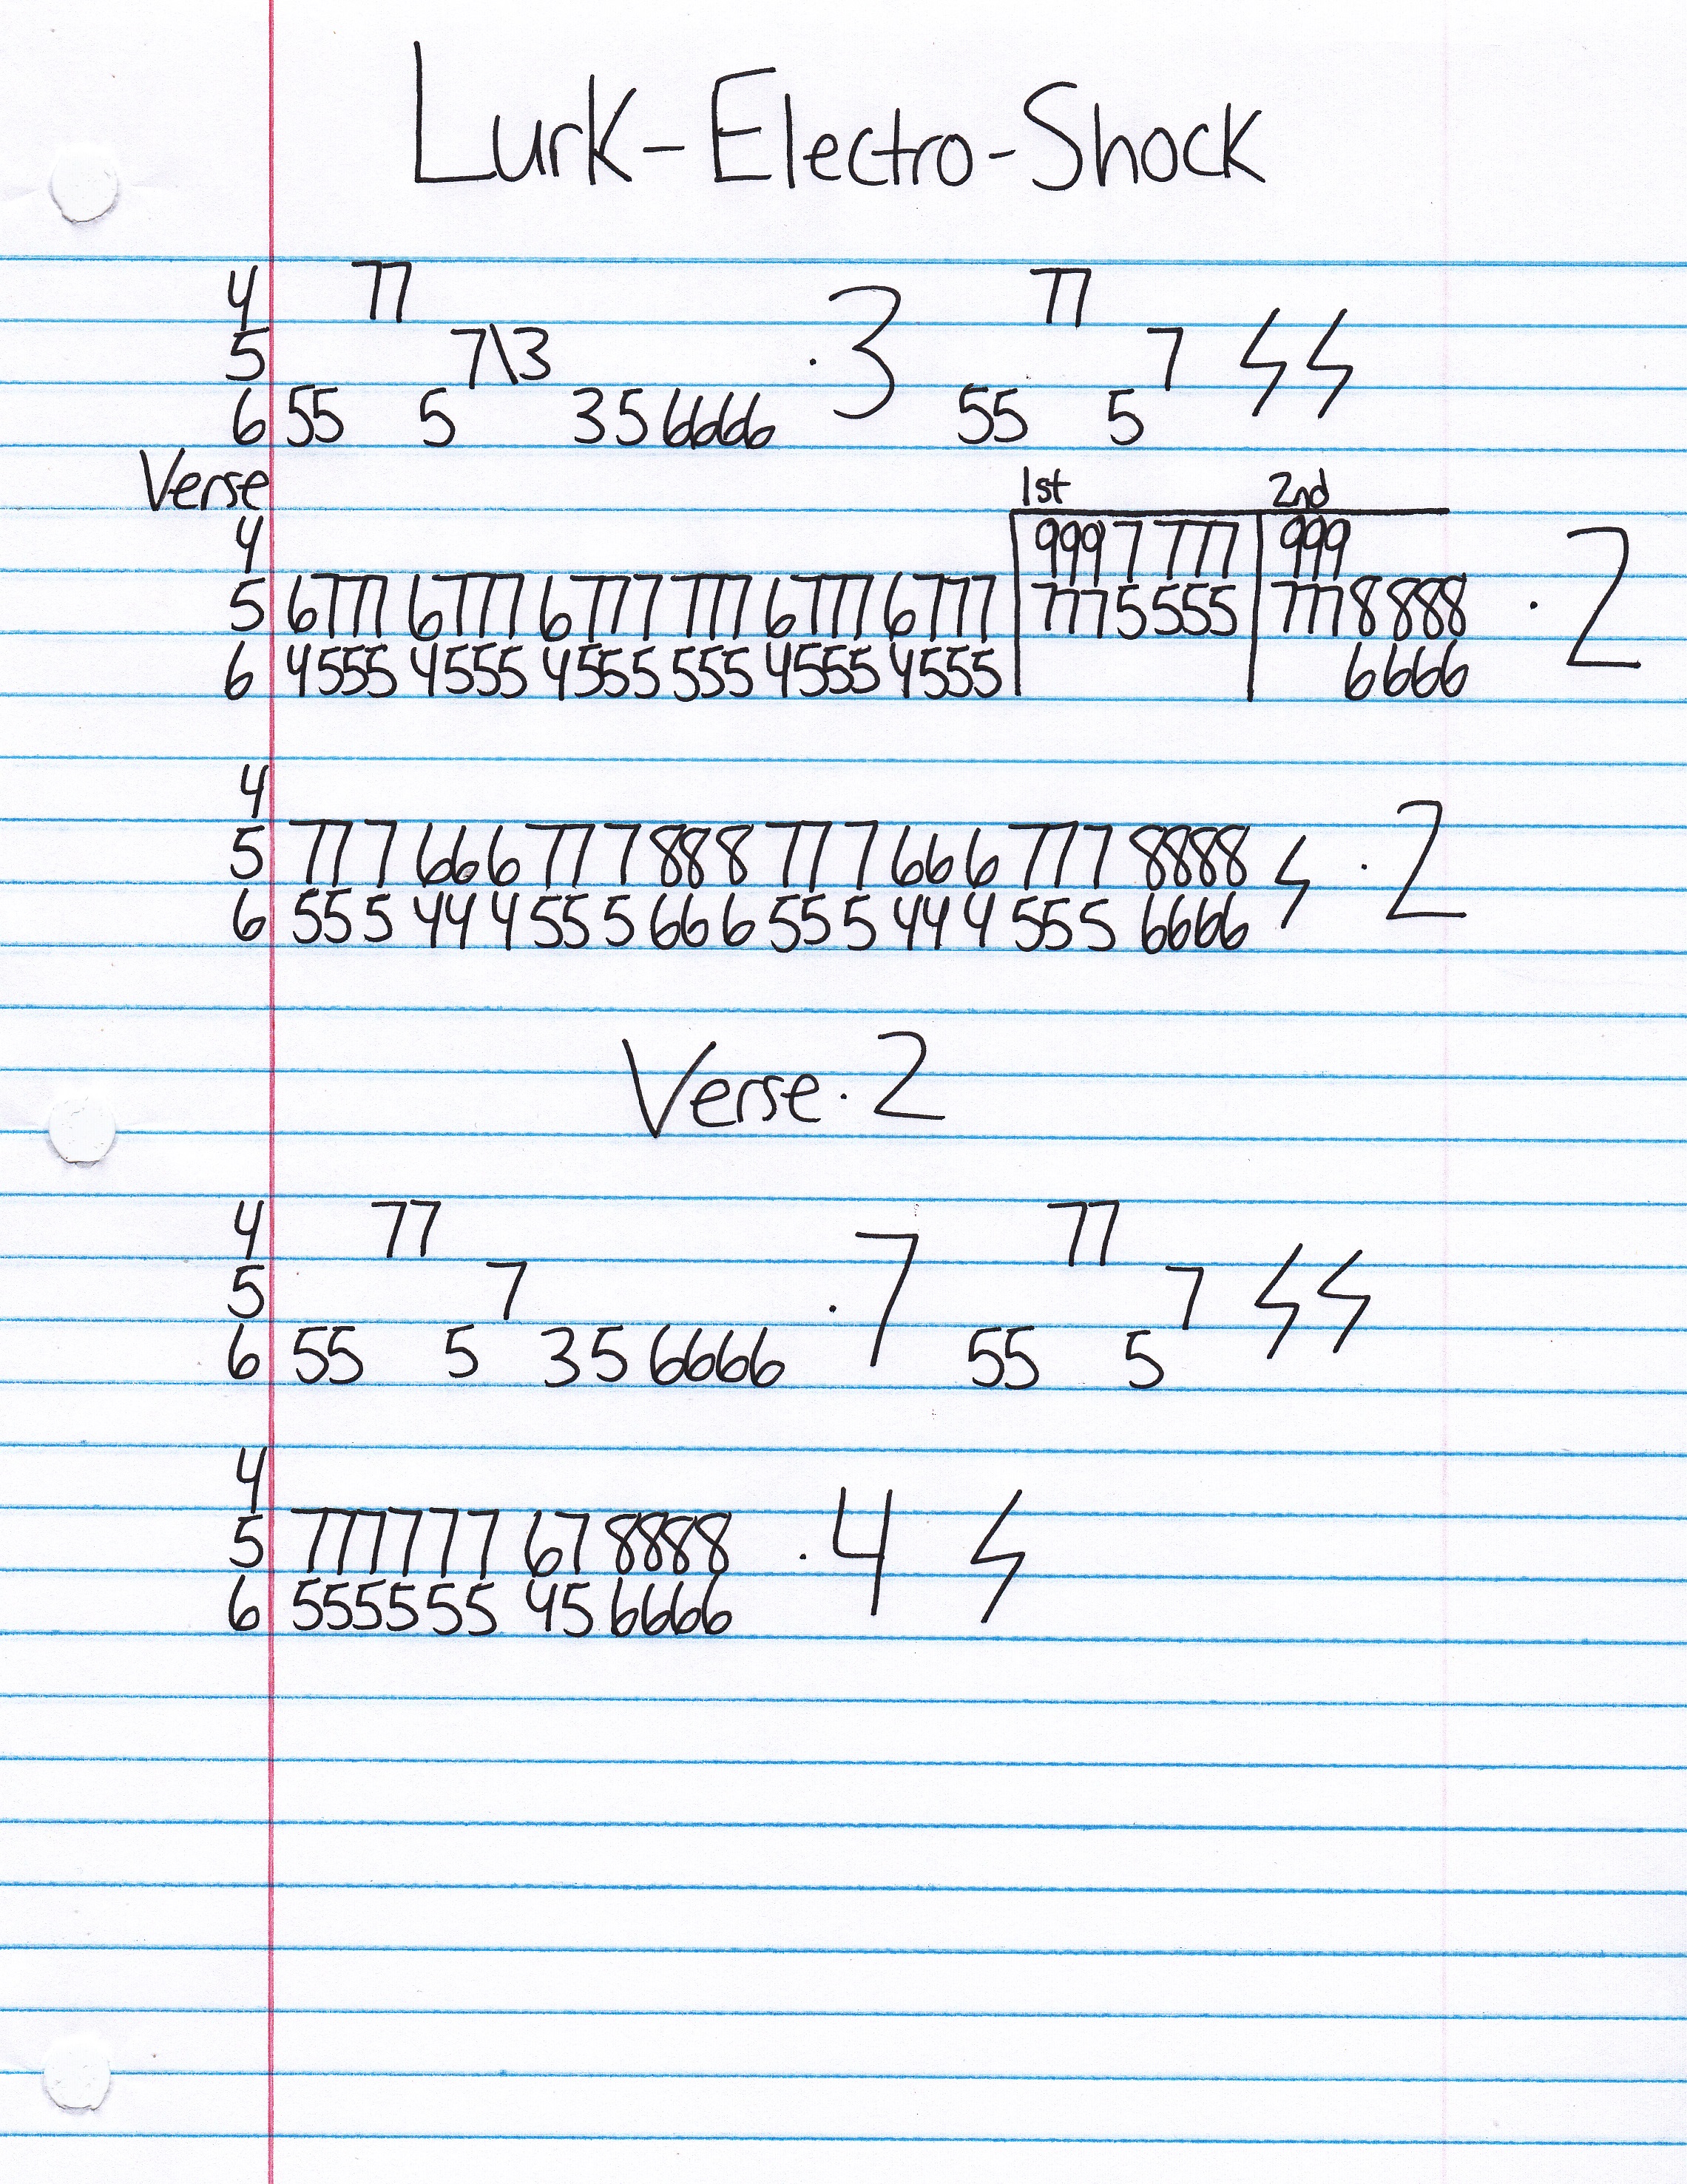 Lurk-Electro-Shock
4 77 77
5 7\3 .3 7 ϟ ϟ
6 55 5 3 5 6666 55 5
Verse 1st 2nd
4 9997 777 999
5 6777 6777 6777 777 6777 6777 7775555 7778888
6 4555 4555 4555 555 4555 4555 6666
4
5 77 7 66 6 77 7 88 8 77 7 66 6 77 7 8888 ϟ .2
6 55 5 44 4 55 5 66 6 55 5 44 4 55 5 6666
Verse.2
4 77 77
5 7 .7 7 ϟ ϟ
6 55 5 3 5 6666 55 5
4
5 777777 67 8888 .4 ϟ
6 555555 45 6666